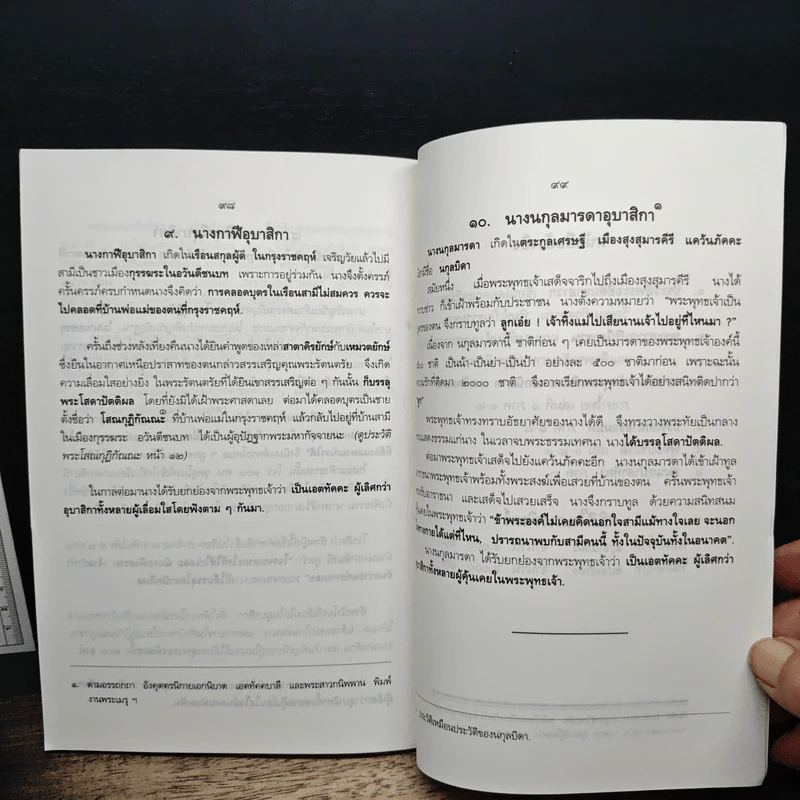 ๙๘
๙. นางกาฬีอุบาสิกา
นางกาฬีอุบาสิกา เกิดในเรือนสกุลผู้ดี ในกรุงราชคฤห์ เจริญวัยแล้วไปมี
สามีเป็นชาวเมืองกุรรฆระในอวันตีชนบท เพราะการอยู่ร่วมกัน นางจึงตั้งครรภ์
ครั้นครรภ์ครบกำหนดนางจึงคิดว่า การคลอดบุตรในเรือนสามีไม่สมควร ควรจะ
ไปคลอดที่บ้านพ่อแม่ของตนที่กรุงราชคฤห์.
ครั้นถึงช่วงหลังเที่ยงคืนนางได้ยินคำพูดของเหล่าสาตาคิรยักษ์กับเหมวตยักษ์
ซึ่งยืนในอากาศเหนือปราสาทของตนกล่าวสรรเสริญคุณพระรัตนตรัย จึงเกิด
ความเลื่อมใสอย่างยิ่ง ในพระรัตนตรัยที่ได้ยินเขาสรรเสริญต่อ ๆ กันนั้น ก็บรรลุ
พระโสดาปัตติผล โดยที่ยังมิได้เฝ้าพระศาสดาเลย ต่อมาได้คลอดบุตรเป็นชาย
ตั้งชื่อว่า โสณกุฏิกัณณะ ที่บ้านพ่อแม่ในกรุงราชคฤห์ แล้วกลับไปอยู่ที่บ้านสามี
ในเมืองกุรรฆระ อวันตีชนบท ได้เป็นผู้อุปัฏฐากพระมหากัจจายนะ (ดูประวัติ
พระโสณกุฏิกัณณะ หน้า ๑๒)
ในกาลต่อมานางได้รับยกย่องจากพระพุทธเจ้าว่า เป็นเอตทัคคะ ผู้เลิศกว่า
อุบาสิกาทั้งหลายผู้เลื่อมใสโดยฟังตาม ๆ กันมา.
๑. ตามอรรถกถา อังคุตตรนิกายเอกนิบาต เอตทัคคบาลี และพระสาวกนิพพาน พิมพ์
งานพระเมรุ ฯ
๙๙
๑๐. นางนกุลมารดาอุบาสิกา๑
นางนกุลมารดา เกิดในตระกูลเศรษฐี เมืองสุงสุมารคีรี แคว้นภัคคะ
มีชื่อ นกุลบิดา
สมัยหนึ่ง เมื่อพระพุทธเจ้าเสด็จจาริกไปถึงเมืองสุงสุมารคีรี นางได้
ข่าว ก็เข้าเฝ้าพร้อมกับประชาชน นางตั้งความหมายว่า "พระพุทธเจ้าเป็น
บุตรของตน จึงกราบทูลว่า ลูกเอ๋ย ! เจ้าทิ้งแม่ไปเสียนานเจ้าไปอยู่ที่ไหนมา ?"
เนื่องจาก นกุลมารดานี้ ชาติก่อน ๆ เคยเป็นมารดาของพระพุทธเจ้าองค์นี้
๐๐ ชาติ เป็นน้า-เป็นย่า-เป็นป้า อย่างละ ๕๐๐ ชาติมาก่อน เพราะฉะนั้น
ความรักที่ติดมา ๒๐๐๐ ชาติ จึงอาจเรียกพระพุทธเจ้าได้อย่างสนิทติดปากว่า
พระพุทธเจ้าทรงทราบอัธยาศัยของนางได้ดี จึงทรงวางพระทัยเป็นกลาง
แสดงธรรมแก่นาง ในเวลาจบพระธรรมเทศนา นางได้บรรลุโสดาปัตติผล.
ต่อมาพระพุทธเจ้าเสด็จไปยังแคว้นภัคคะอีก นางนกุลมารดาได้เข้าเฝ้าทูล
พระพุทธเจ้าพร้อมทั้งพระสงฆ์เพื่อเสวยที่บ้านของตน ครั้นพระพุทธเจ้า
รับอาราธนา และเสด็จไปเสวยเสร็จ นางจึงกราบทูล ด้วยความสนิทสนม
คุ้นเคยในพระพุทธเจ้าว่า "ข้าพระองค์ไม่เคยคิดนอกใจสามีแม้ทางใจเลย จะนอก
ทางกายได้แต่ที่ไหน, ปรารถนาพบกับสามีคนนี้ ทั้งในปัจจุบันทั้งในอนาคต".
นางนกุลมารดา ได้รับยกย่องจากพระพุทธเจ้าว่า เป็นเอตทัคคะ ผู้เลิศกว่า
อุบาสิกาทั้งหลายผู้คุ้นเคยในพระพุทธเจ้า.
ประวัติเหมือนประวัติของนกุลบิดา.